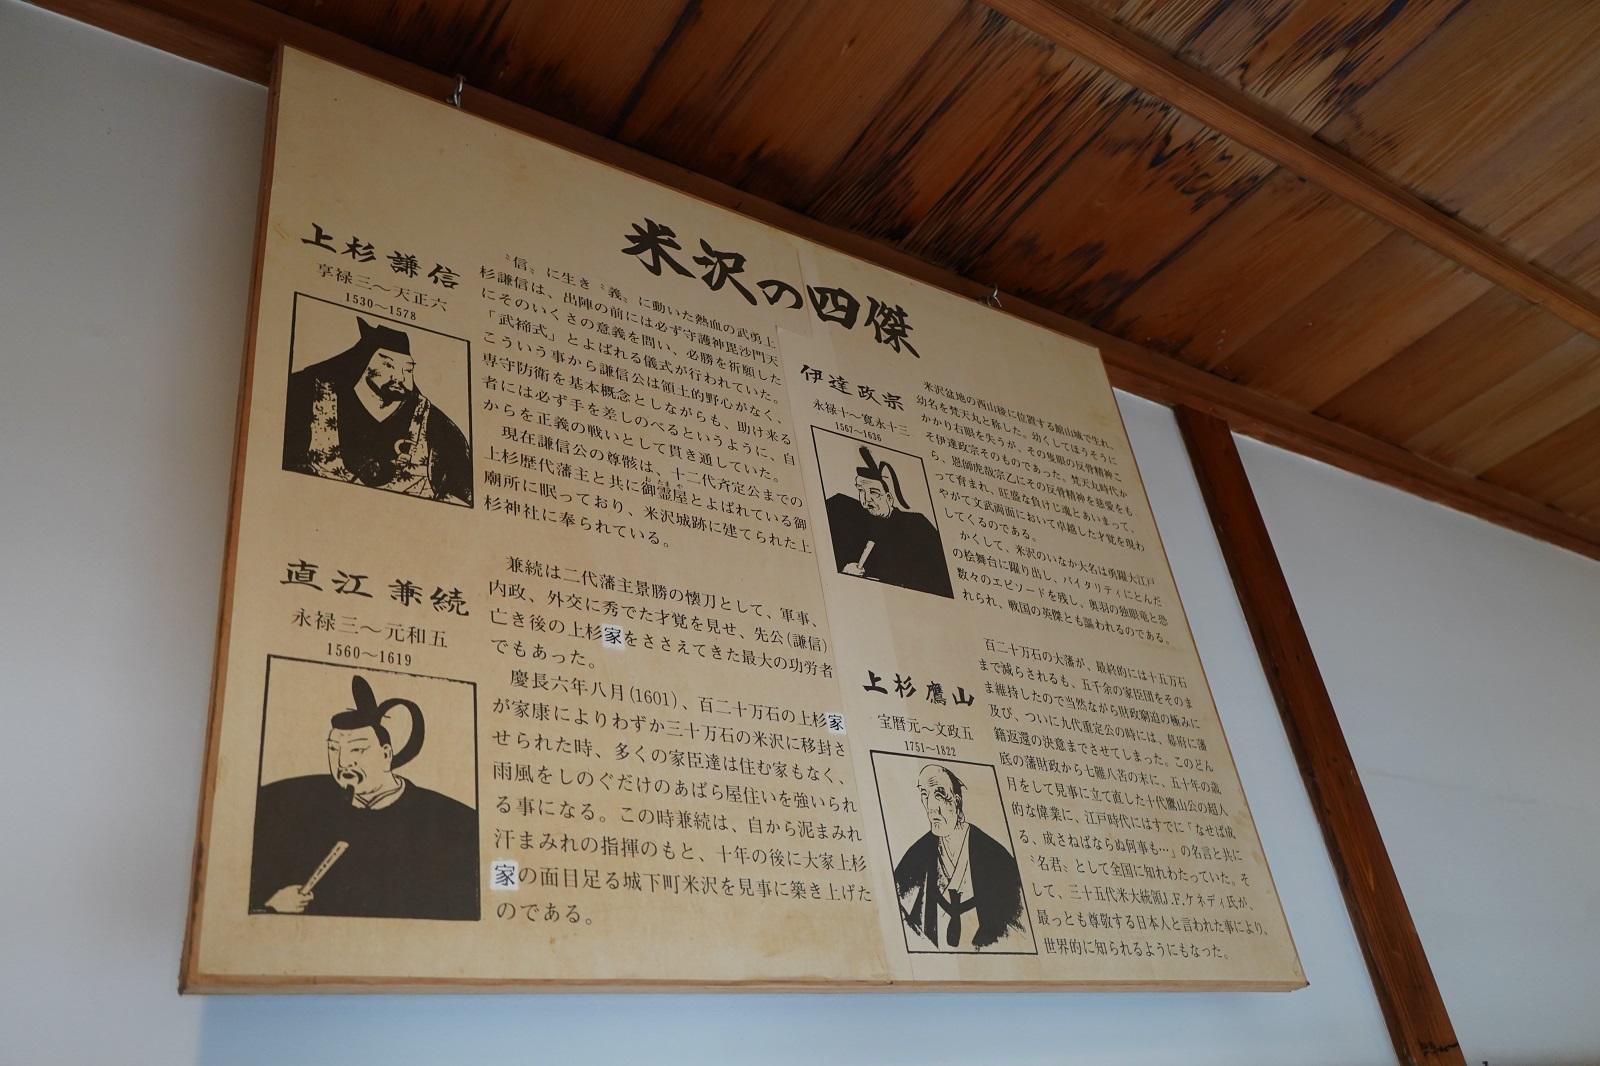 米沢の四傑
上杉謙信
享禄三～天正六
1530～1578
〝信〟に生き〝義〟に動いた熱血の武勇上
杉謙信は、出陣の前には必ず守護神毘沙門天
にそのいくさの意義を問い、必勝を祈願した
「武禘式」とよばれる儀式が行われていた。
こういう事から謙信公は領土的野心がなく、
専守防衛を基本概念としながらも、助け来る
者には必ず手を差しのべるというように、自
からを正義の戦いとして貫き通していた。
現在謙信公の尊骸は、十二代斉定公までの
上杉歴代藩主と共に御霊屋とよばれている御
廟所に眠っており、米沢城跡に建てられた上
杉神社に奉られている。
直江兼続
永禄三～元和五
1560～1619
兼続は二代藩主景勝の懐刀として、軍事、
内政、外交に秀でた才覚を見せ、先公(謙信)
亡き後の上杉家をささえてきた最大の功労者
でもあった。
慶長六年八月(1601)、百二十万石の上杉家
が家康によりわずか三十万石の米沢に移封さ
せられた時、多くの家臣達は住む家もなく、
雨風をしのぐだけのあばら屋住いを強いられ
る事になる。この時兼続は、自から泥まみれ
汗まみれの指揮のもと、十年の後に大家上杉
家の面目足る城下町米沢を見事に築き上げた
のである。
伊達政宗
永禄十～寛永十三
1567～1636
米沢盆地の西山稜に位置する館山城で生れ、
幼名を梵天丸と称した。幼くしてほうそうに
かかり右眼を失うが、その隻眼の反骨精神こ
そ伊達政宗そのものであった。梵天丸時代か
ら、恩師虎哉宗乙にその反骨精神を慈愛をも
って育まれ、旺盛な負けじ魂とあいまって、
やがて文武両面において卓越した才覚を現わ
してくるのである。
かくして、米沢のいなか大名は勇躍大江戸
の桧舞台に躍り出し、バイタリティにとんだ
数々のエピソードを残し、奥羽の独眼竜と恐
れられ、戦国の英傑とも謳われるのである。
上杉鷹山
宝暦元～文政五
1751～1822
百二十万石の大藩が、最終的には十五万石
まで減らされるも、五千余の家臣団をそのま
ま維持したので当然ながら財政窮迫の極みに
及び、ついに九代重定公の時には、幕府に藩
籍返還の決意までさせてしまった。このどん
底の藩財政から七難八苦の末に、五十年の歳
月をして見事に立て直した十代鷹山公の超人
的な偉業に、江戸時代にはすでに「なせば成
る、成さねばならぬ何事も…」の名言と共に
〝名君〟として全国に知れわたっていた。そ
して、三十五代米大統領J.F.ケネディ氏が、
最っとも尊敬する日本人と言われた事により、
世界的に知られるようにもなった。